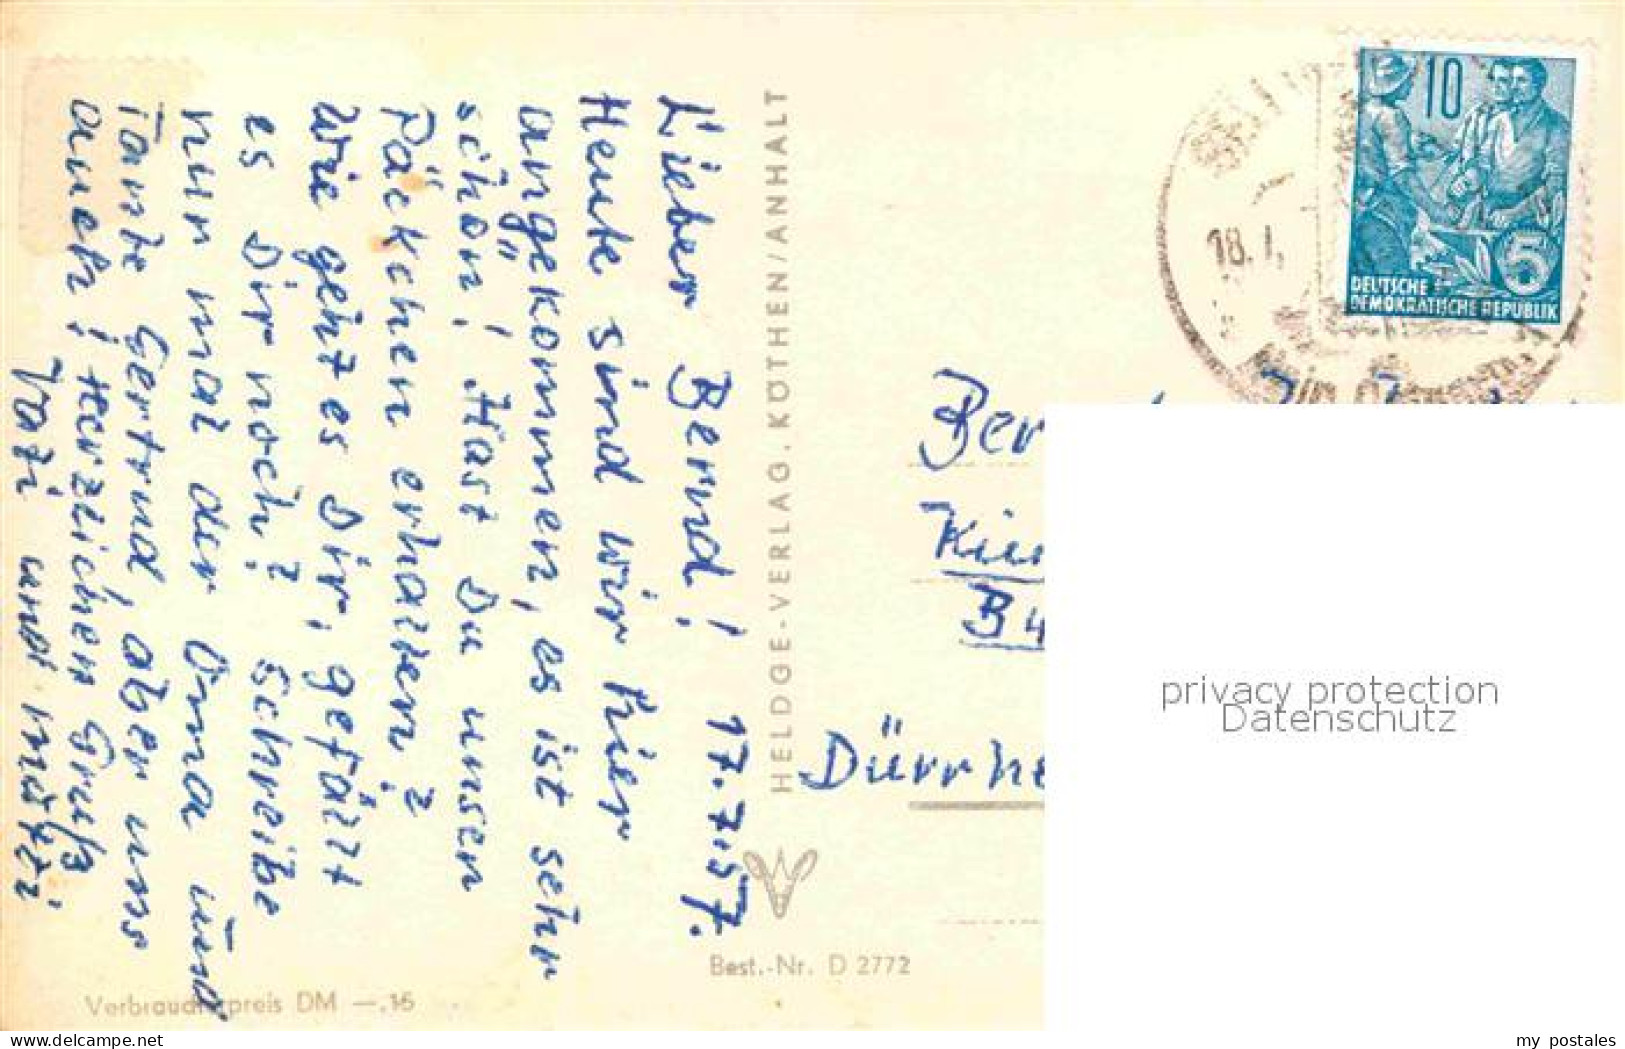 Lieber Bernd! 17.7.57.
Heute sind wir hier
angekommen, es ist sehr
schön! Hast Du unser
Päckchen erhalten?
Wie geht es Dir, gefällt
es Dir noch? Schreibe
nun mal der Oma und
Tante Gertrud, aber uns
auch! Herzlichen Gruß
Vati und Mutti
HELDGE-VERLAG. KÖTHEN/ANHALT
10
5
DEUTSCHE
DEMOKRATISCHE REPUBLIK
18.7.
Ber
B4
Dürrhe
privacy protection
Datenschutz
Best.-Nr. D 2772
Verbraucherpreis DM —.15
my postales